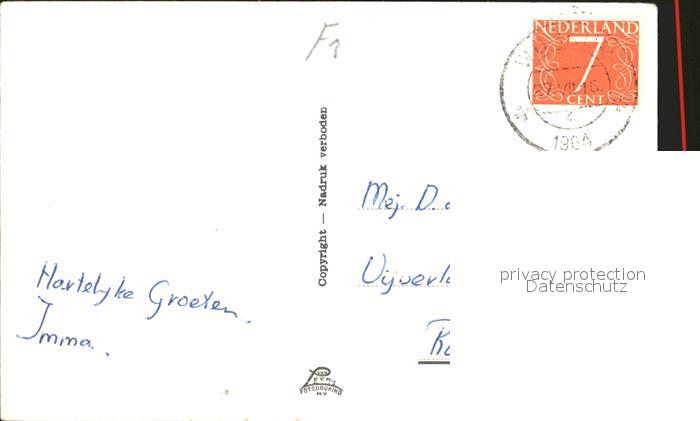 NEDERLAND
7
CENT
1964
Copyright — Nadruk verboden
Mej. D.
privacy protection
Datenschutz
Hartelyke Groeten,
Imma.
VAN LEER'S
FOTODRUKIND.
N.V.